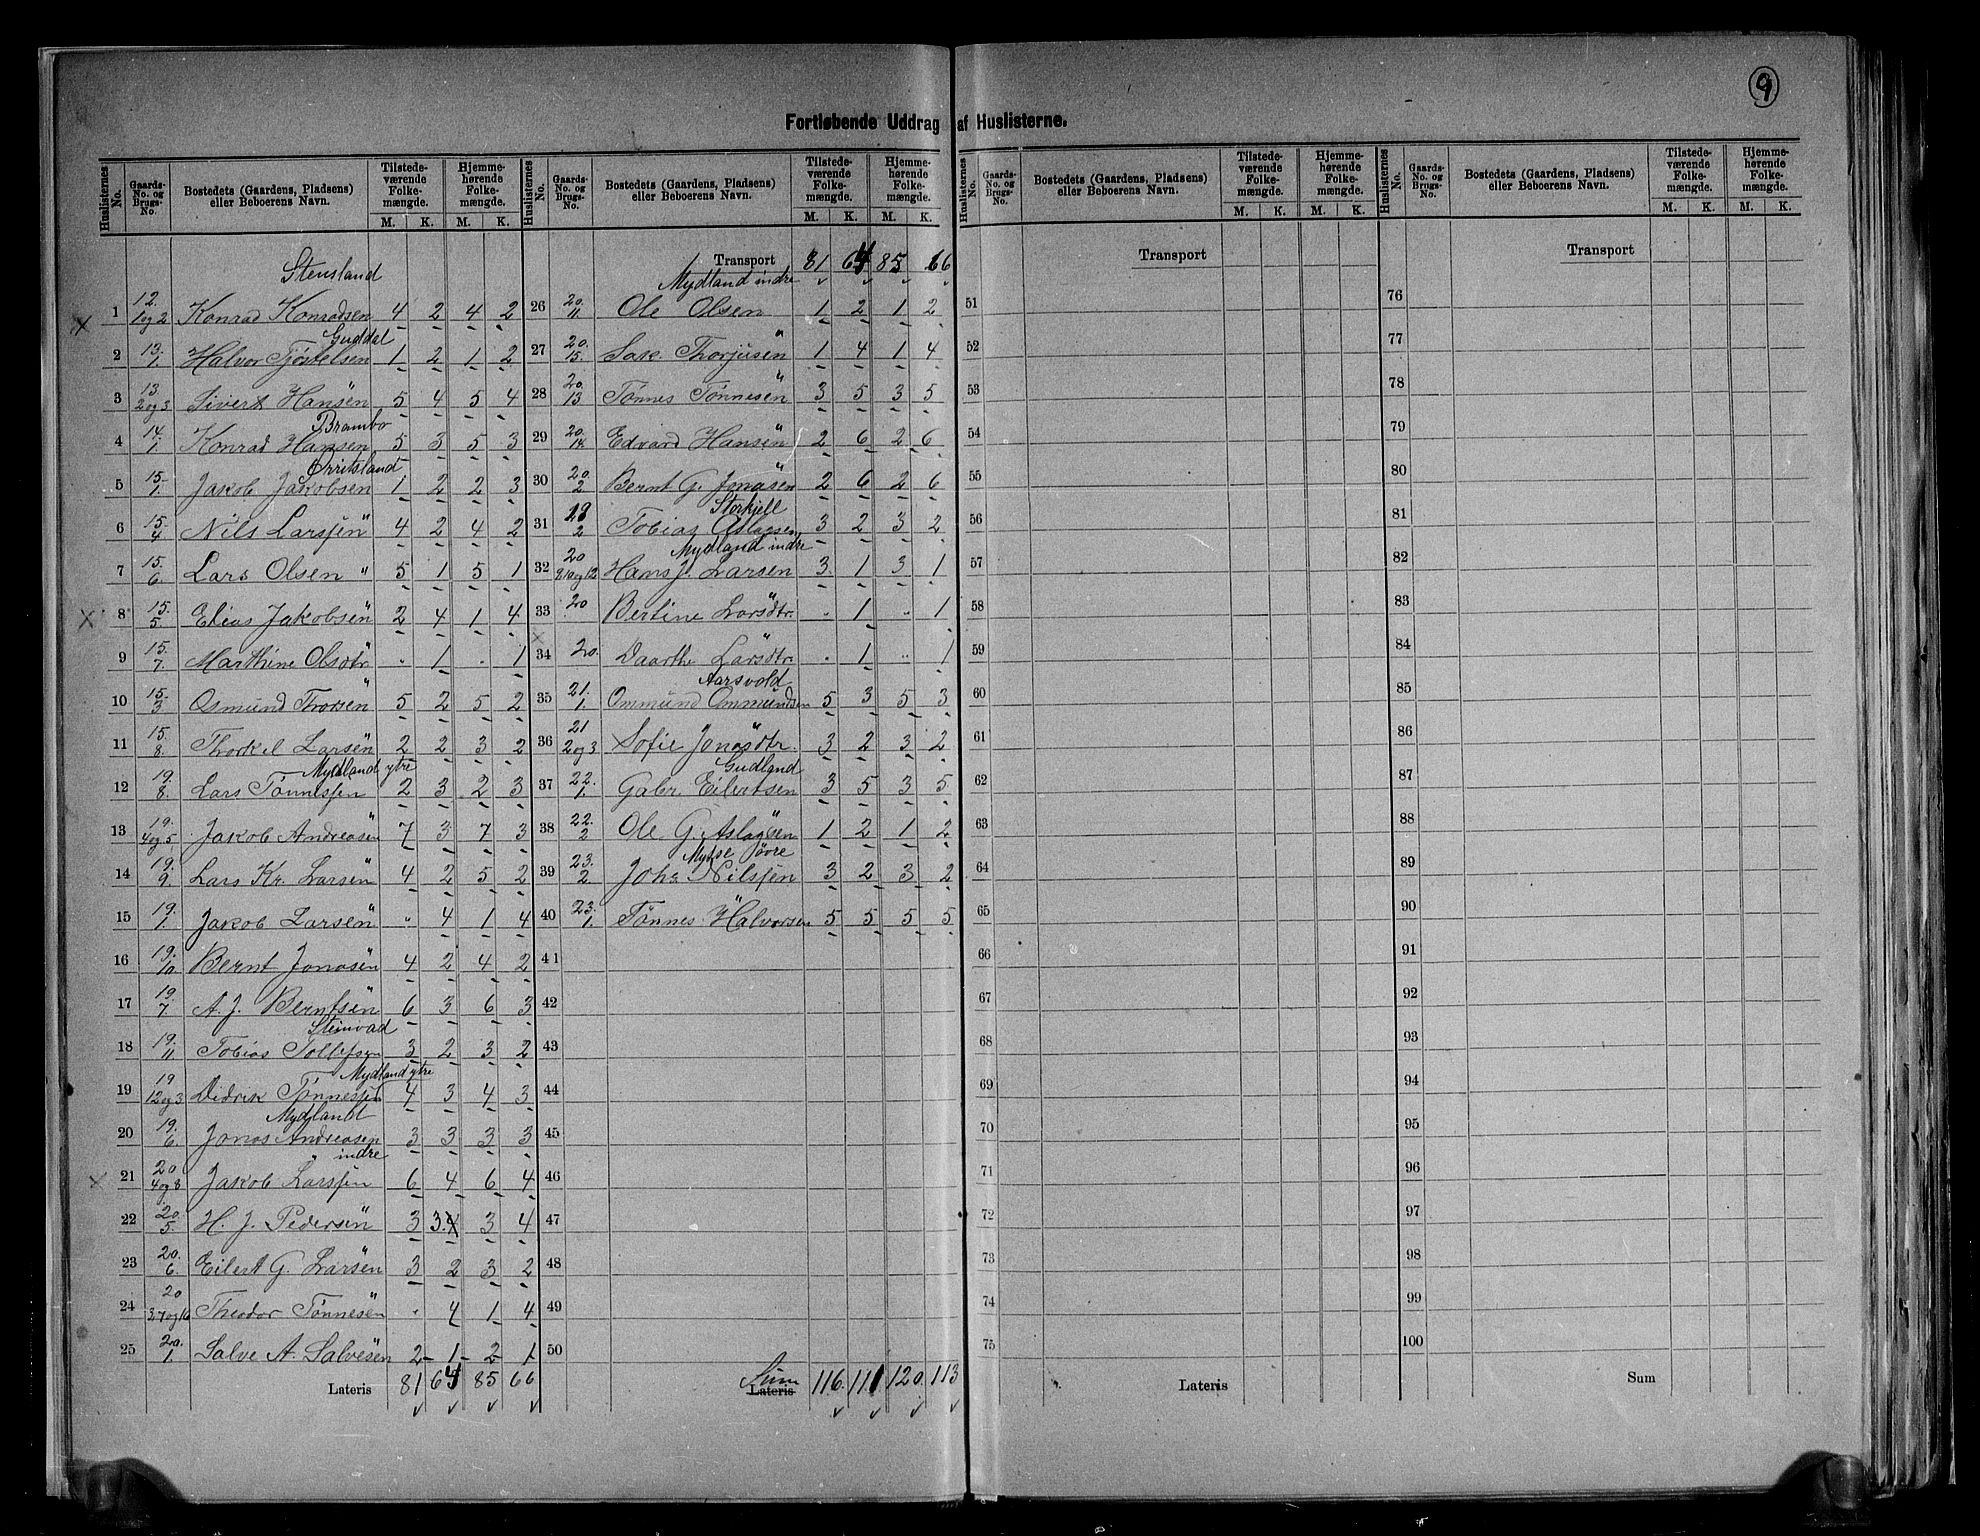 9
Fortløbende Uddrag af Huslisterne.
Huslisternes No. | Gaards- No. og Brugs- No. | Bostedets (Gaardens, Pladsens) eller Beboerens Navn. | Tilstede- værende Folke- mængde. M. K. | Hjemme- hørende Folke- mængde. M. K.
Stensland
1 12. 1og2 Konrad Konradsen 4 2 4 2
Guddal
2 13. 1. Halvor Tjöstelsen 1 2 1 2
3 13 2og3 Sivert Hansen " 5 4 5 4
Brambo
4 14. 1. Konrad Hansen 5 3 5 3
Örritsland
5 15. 1. Jakob Jakobsen 1 2 2 3
6 15. 4 Nils Larssen " 4 2 4 2
7 15. 6. Lars Olsen " 5 1 5 1
8 15. 5 Elias Jakobsen " 2 4 1 4
9 15. 7. Marthine Olsdtr. " . 1 . 1
10 15. 3 Osmund Thorsen " 5 2 5 2
11 15. 8. Thorkel Larsen " 2 2 3 2
Mydland ytre
12 19. 8. Lars Tönnessen 2 3 2 3
13 19. 4og5 Jakob Andreasen " 7 3 7 3
14 19. 9. Lars Kr. Larsen " 4 2 5 2
15 19. 1. Jakob Larsen " " 4 1 4
16 19. 10 Bernt Jonasen " 4 2 4 2
17 19. 7. A. J. Berntsen " 6 3 6 3
Steinvad
18 19. 11 Tobias Tollefsen 3 2 3 2
Mydland ytre
19 19 12og3 Didrik Tönnessen 4 3 4 3
Mydland
20 19. 6. Jonas Andreasen 3 3 3 3
indre
21 20 4og8 Jakob Larssen 6 4 6 4
22 20. 5. H. J. Pedersen " 3 3.4 3 4
23 20. 6. Eilert G. Larsen " 3 2 3 2
24 20 3.7og16 Theodor Tönnesen " " 4 1 4
25 20. 1. Salve A. Salvesen " 2 1 2 1
Lateris 81 64 85 66
Transport 81 64 85 66
Mydland indre
26 20. 11 Ole Olsen 1 2 1 2
27 20. 15. Sak. Thorjusen " 1 4 1 4
28 20. 13 Tönnes Tönnesen " 3 5 3 5
29 20. 14. Edvard Hansen " 2 6 2 6
30 20. 2 Bernt G. Jonasen " 2 6 2 6
Storkjell
31 2 Tobias Aslagsen 3 2 3 2
Mydland indre
32 20 8 10og12 Hans J. Larsen 3 1 3 1
33 20 Bertine Larsdtr. " . 1 " 1
34 20. Daarthe Larsdtr. " . 1 " 1
Aarsvold
35 21. 1. Ommund Ommundsen 5 3 5 3
36 21 2og3 Sofie Jonasdtr. " 3 2 3 2
Gudland
37 22. 1. Gabr Eilertsen 3 5 3 5
38 22. 2 Ole G. Aslagsen " 1 2 1 2
Myhse Jövre
39 23. 2 Johs Nilssen 3 2 3 2
40 23. 1. Tönnes Halvorsen " 5 5 5 5
41
42
43
44
45
46
47
48
49
50
Sum Lateris 116. 111 120. 113
Huslisternes No. | Gaards- No. og Brugs- No. | Bostedets (Gaardens, Pladsens) eller Beboerens Navn. | Tilstede- værende Folke- mængde. M. K. | Hjemme- hørende Folke- mængde. M. K.
Transport
51
52
53
54
55
56
57
58
59
60
61
62
63
64
65
66
67
68
69
70
71
72
73
74
75
Lateris
Transport
76
77
78
79
80
81
82
83
84
85
86
87
88
89
90
91
92
93
94
95
96
97
98
99
100
Sum